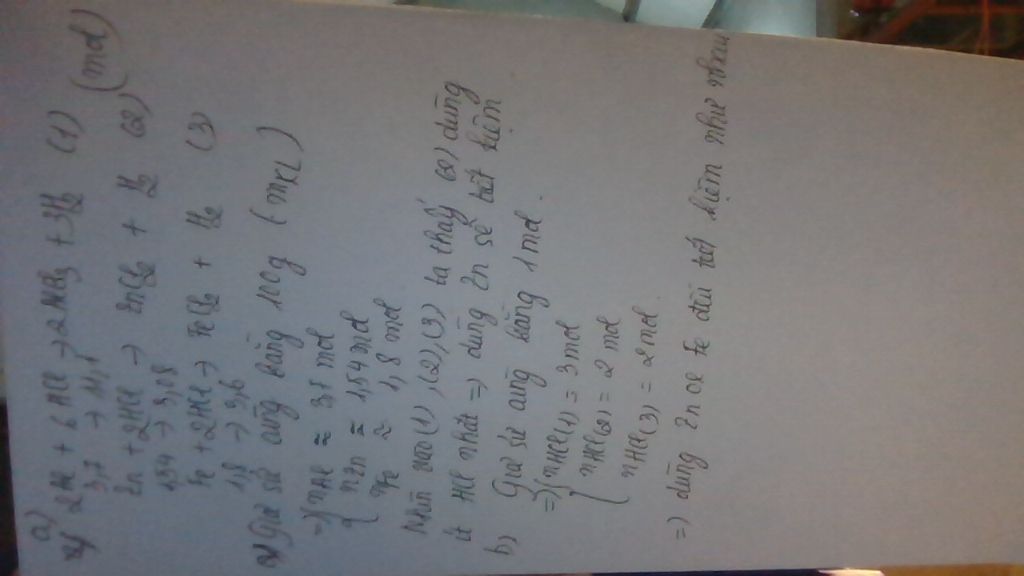 a)
2Al + 6HCl → 2AlCl3 + 3H2 (1)
3,7 → 11,1 (mol)
Zn + 2HCl → ZnCl2 + H2 (2)
1,54 → 3,08
Fe + 2HCl → FeCl2 + H2 (3)
1,8 → 3,6
Giả sử cùng bằng 100g (mKL)
=> { nAl ≈ 3,7 mol
nZn ≈ 1,54 mol
nFe ≈ 1,8 mol
Nhìn vào (1), (2), (3) ta thấy (2) dùng
ít HCl nhất => dùng Zn sẽ tiết kiệm
b, Giả sử cùng bằng 1 mol.
=> { nHCl(1) = 3 mol
nHCl(2) = 2 mol
nHCl(3) = 2 mol
=> dùng Zn or Fe đều tiết kiệm như nhau